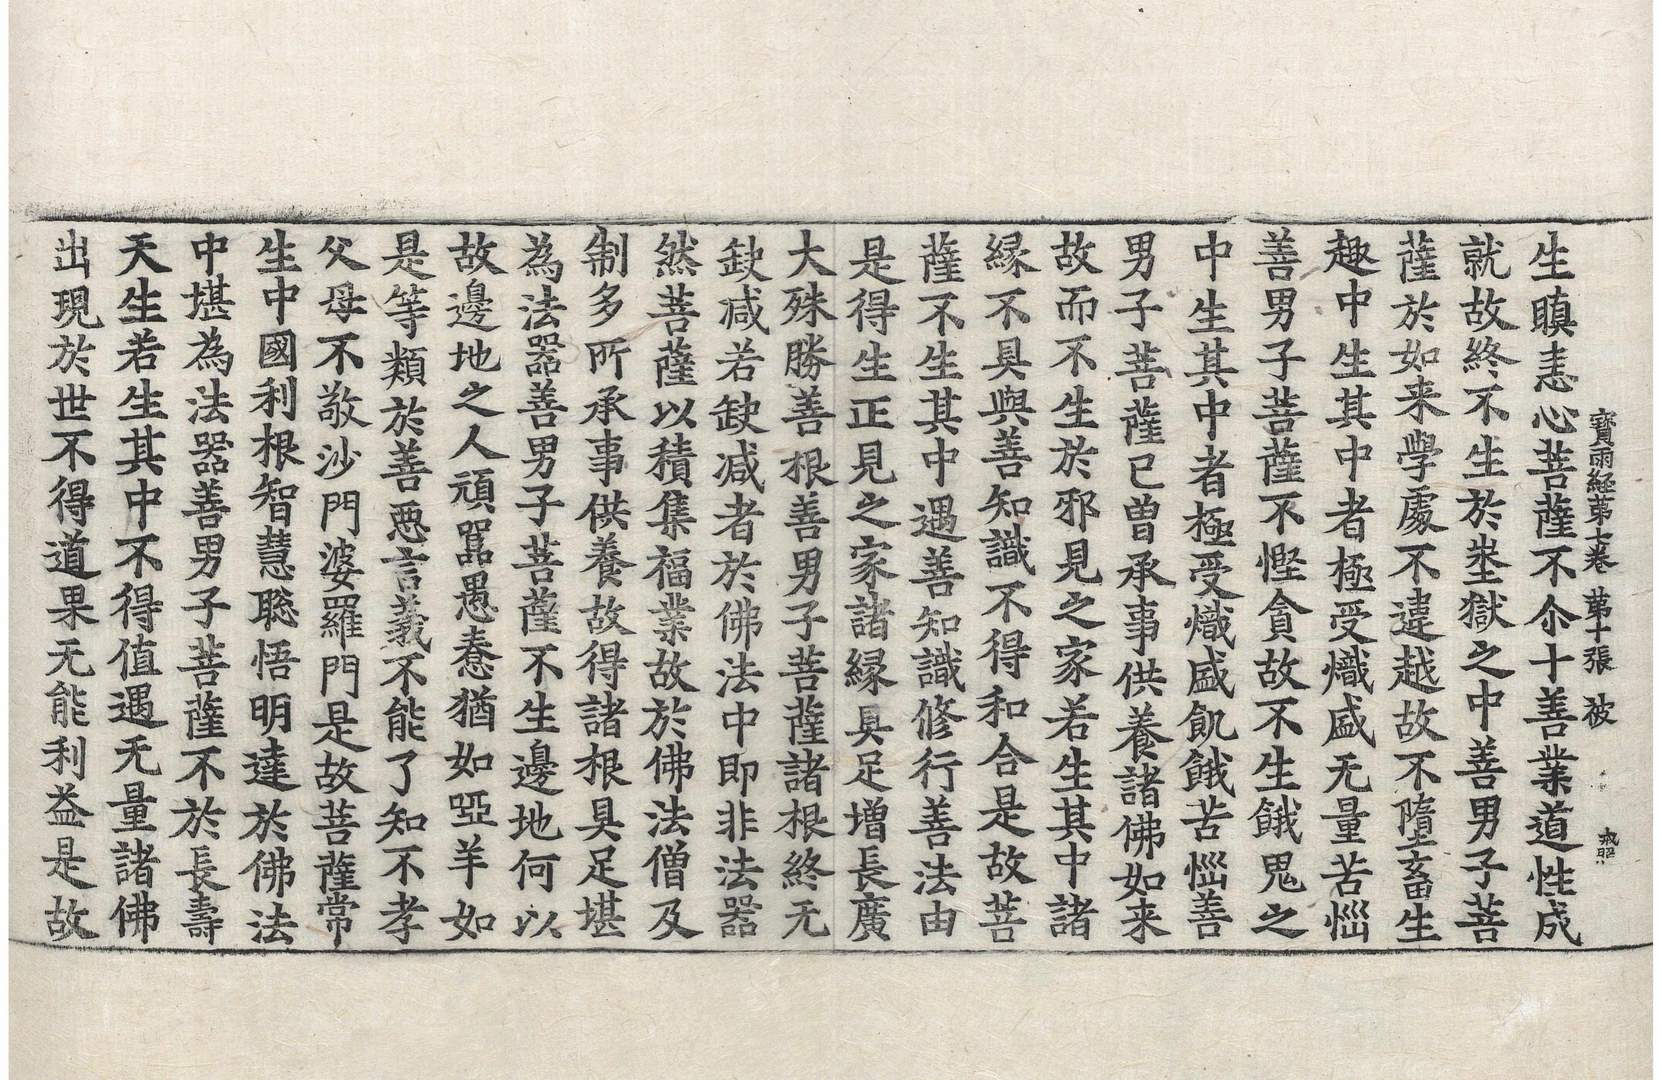 寳雨經苐七卷 苐十張 彼
戒昭
生瞋恚心菩薩不尒十善業道性成
就故終不生於坔獄之中善男子菩
薩於如来學處不違越故不墮畜生
趣中生其中者極受熾盛无量苦惱
善男子菩薩不慳貪故不生餓鬼之
中生其中者極受熾盛飢餓苦惱善
男子菩薩已曽承事供養諸佛如来
故而不生於邪見之家若生其中諸
縁不具與善知識不得和合是故菩
薩不生其中遇善知識修行善法由
是得生正見之家諸縁具足増長廣
大殊勝善根善男子菩薩諸根終无
缺减若缺减者於佛法中即非法器
然菩薩以積集福業故於佛法僧及
制多所承事供養故得諸根具足堪
為法器善男子菩薩不生邊地何以
故邊地之人頑嚚愚憃猶如啞羊如
是等類於善悪言義不能了知不孝
父母不敬沙門婆羅門是故菩薩常
生中國利根智慧聡悟明達於佛法
中堪為法器善男子菩薩不於長壽
天生若生其中不得值遇无量諸佛
出現於世不得道果无能利益是故